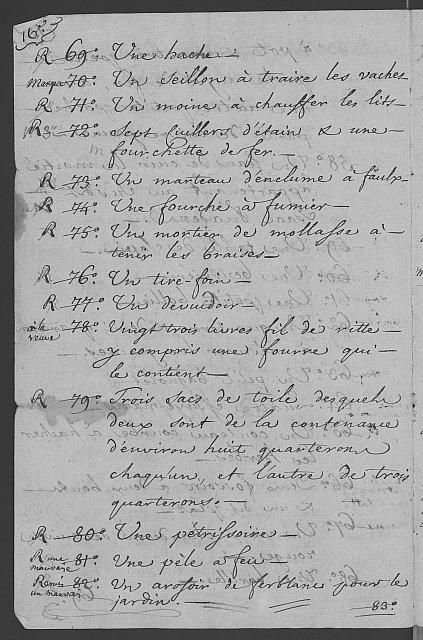 16.
R 69.° Une hache —
Manque 70.° Un seillon à traire les vaches
R 71.° Un moine à chauffer les lits —
R 72.° Sept cuillers d'étain, & une —
fourchette de fer. —
R 73.° Un marteau d'enclume à faulx
R 74.° Une fourche à fumier —
R 75.° Un mortier de mollasse à —
tenir les braises —
R 76.° Un tire-foin —
R 77.° Un devuidoir —
à la veuve 78.° Vingt trois livres fil de ritte —
y compris une fourre qui —
le contient —
R 79.° Trois sacs de toile desquels
deux sont de la contenance
d'environ huit quarterons
chaqu'un, et l'autre de trois
quarterons. —
R 80.° Une pétrissoire —
R une mauvaise 81.° Une pèle à feu —
Remis un mauvais 82.° Un arosoir de ferblanc pour le
jardin. —
83.°